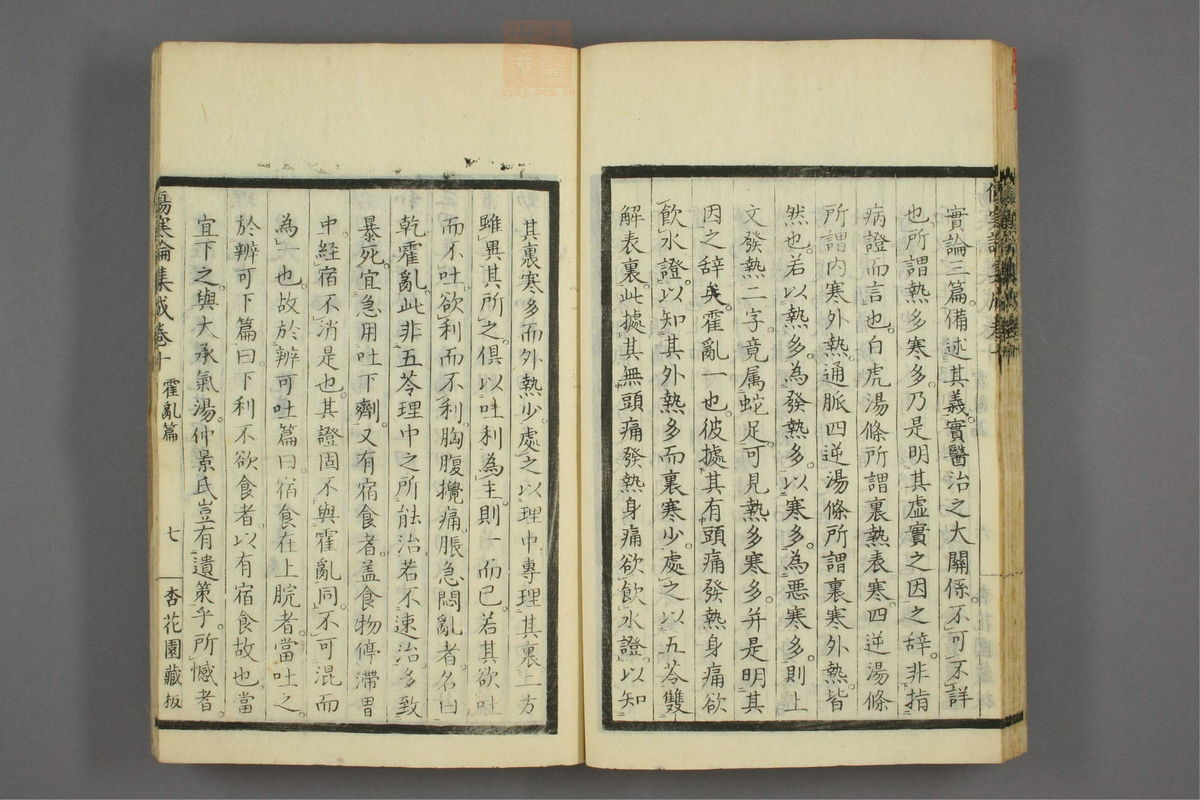 實論三篇備述其義實醫治之大關係不可不詳
也所謂熱多寒多乃是明其虛實之因之辞非指
病證而言也白虎湯條所謂裏熱表寒四逆湯條
所謂內寒外熱通脈四逆湯條所謂裏寒外熱皆
然也若以熱多為發熱多以寒多為惡寒多則上
文發熱二字竟属蛇足可見熱多寒多并是明其
因之辞矣霍亂一也彼據其有頭痛發熱身痛欲
飲水證以知其外熱多而裏寒少處之以五苓雙
解表裏此據其無頭痛發熱身痛欲飲水證以知
其裏寒多而外熱少處之以理中專理其裏二方
雖異其所之俱以吐利為主則一而已若其欲吐
而不吐欲利而不利胸腹攪痛脹急悶亂者名曰
乾霍亂此非五苓理中之所能治若不速治多致
暴死宜急用吐下劑又有宿食者盖食物停滯胃
中經宿不消是也其證固不與霍亂同不可混而
為一也故於辨可吐篇曰宿食在上脘者當吐之
於辨可下篇曰下利不欲食者以有宿食故也當
宜下之與大承氣湯仲景氏豈有遺策乎所憾者
傷寒論集成卷十 霍亂篇 七 杏花園藏板